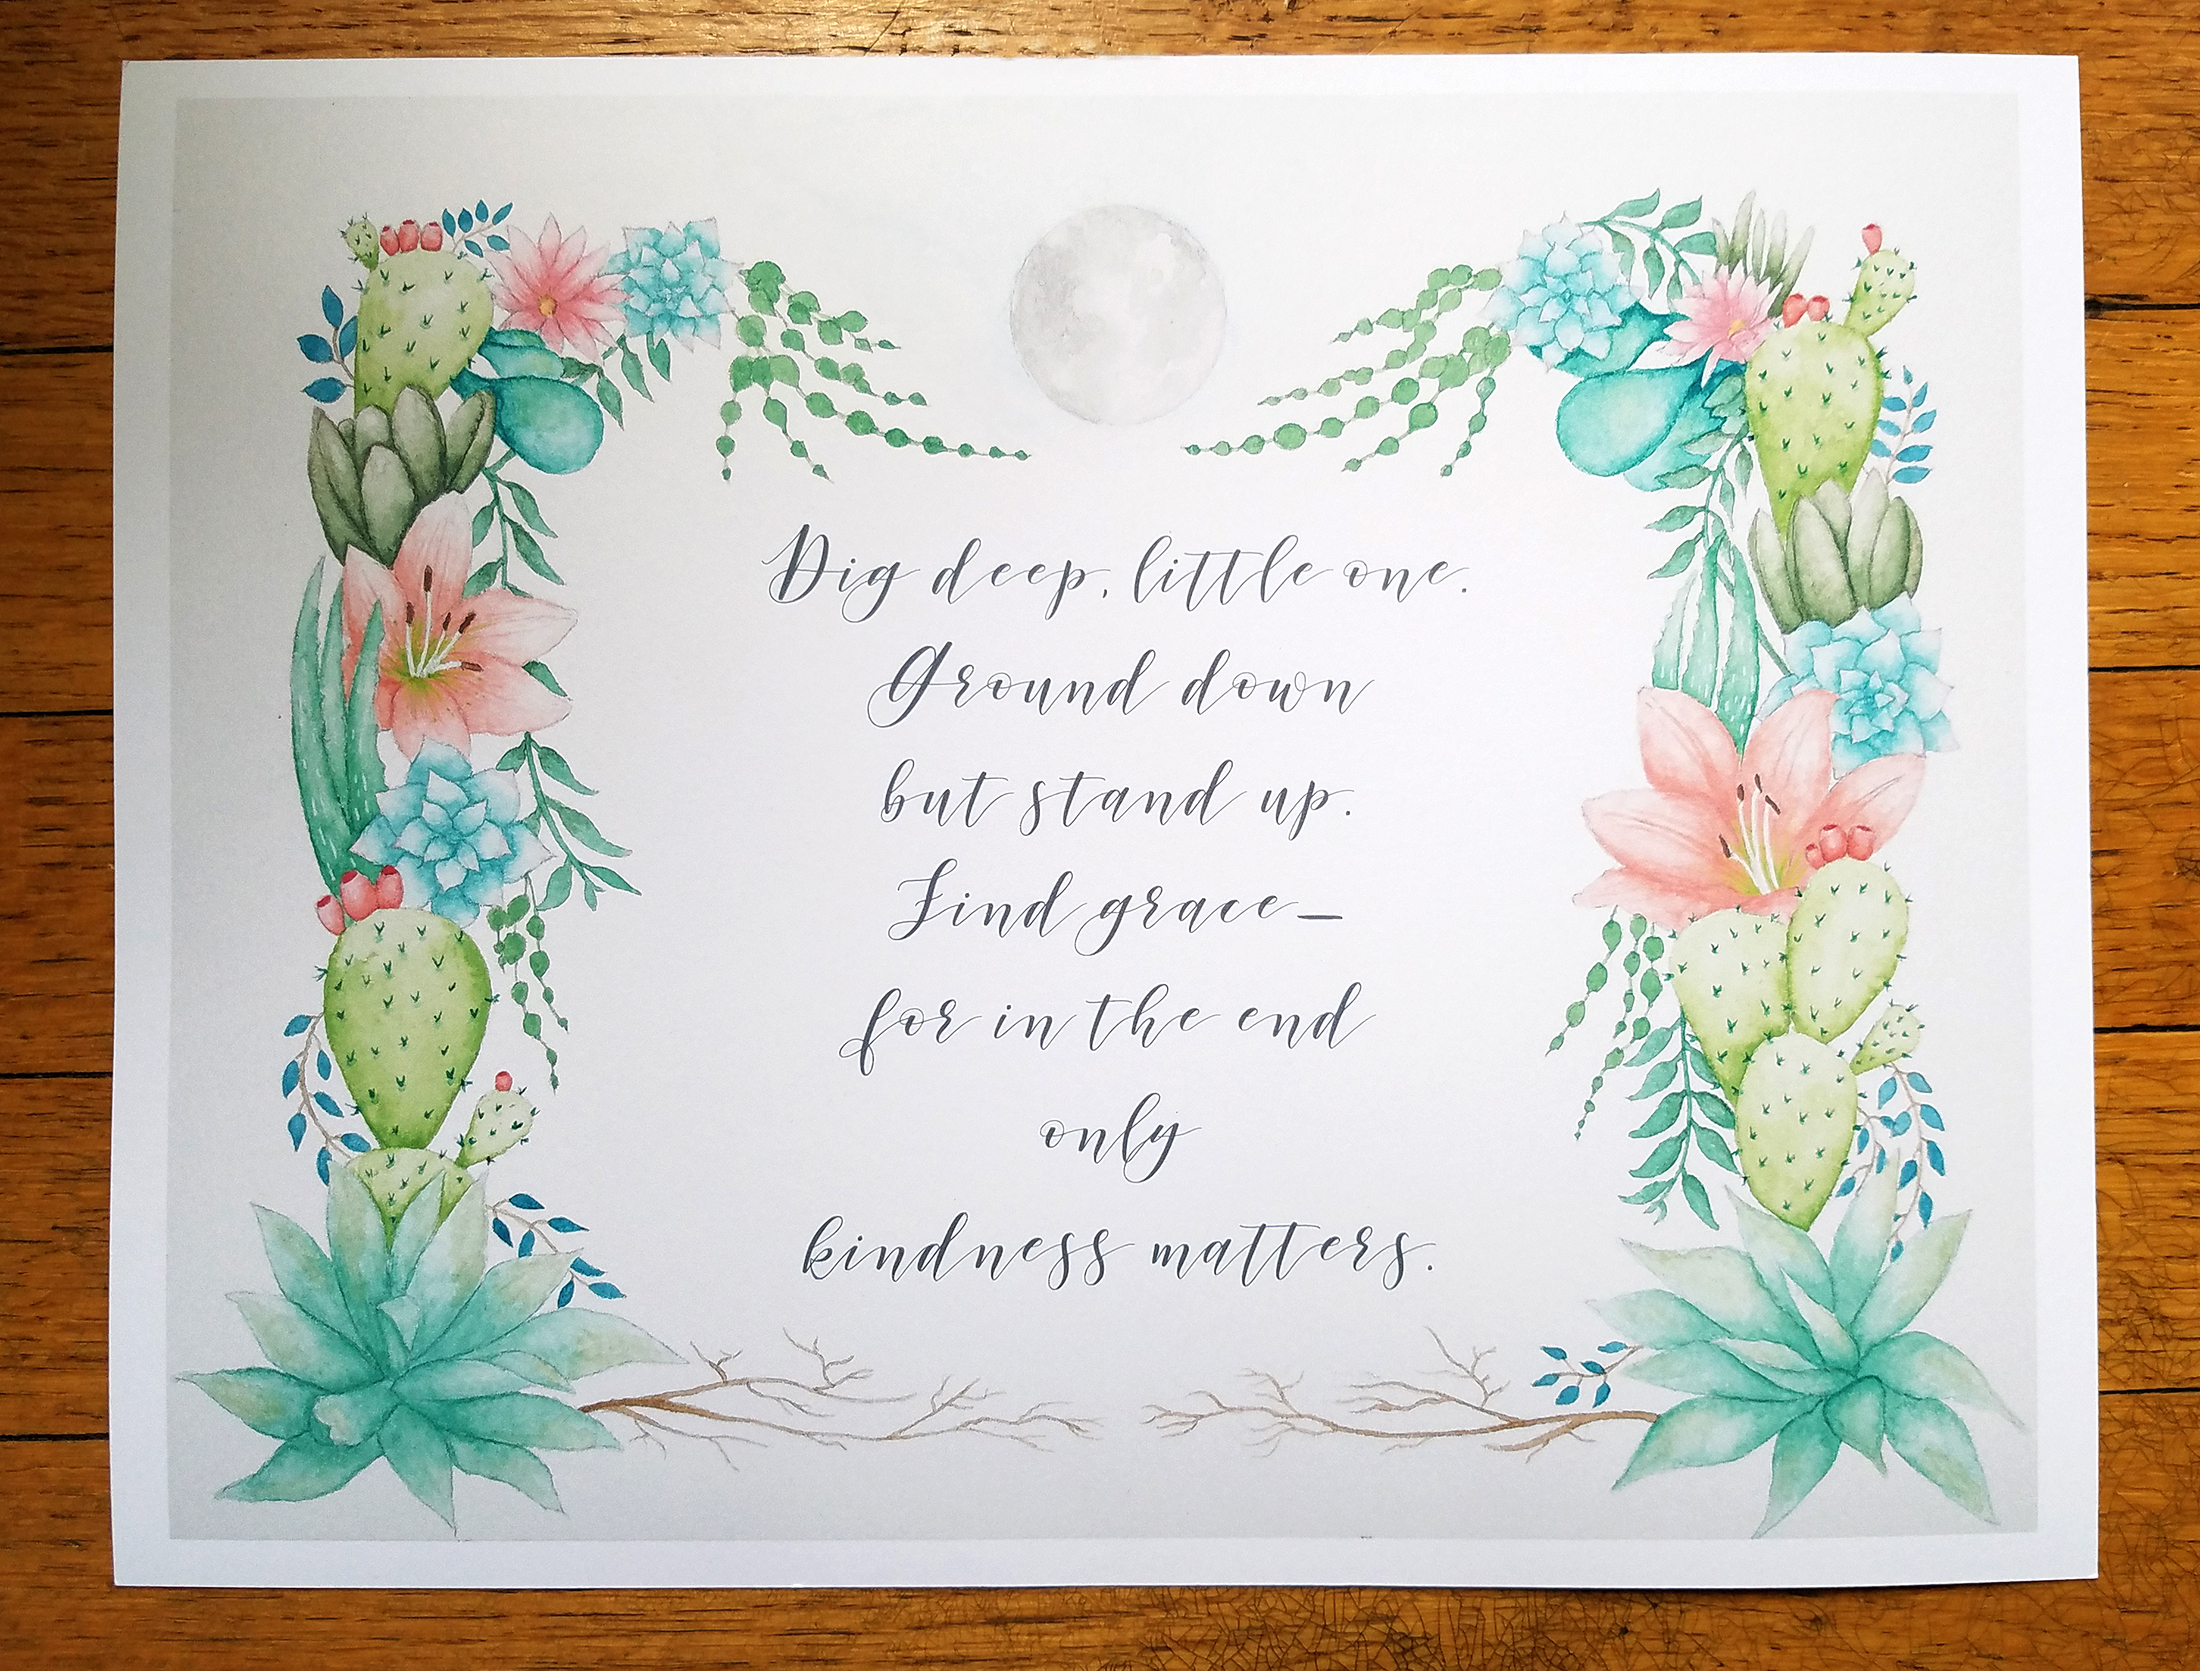 Dig deep, little one.
Ground down
but stand up.
Find grace—
for in the end
only
kindness matters.